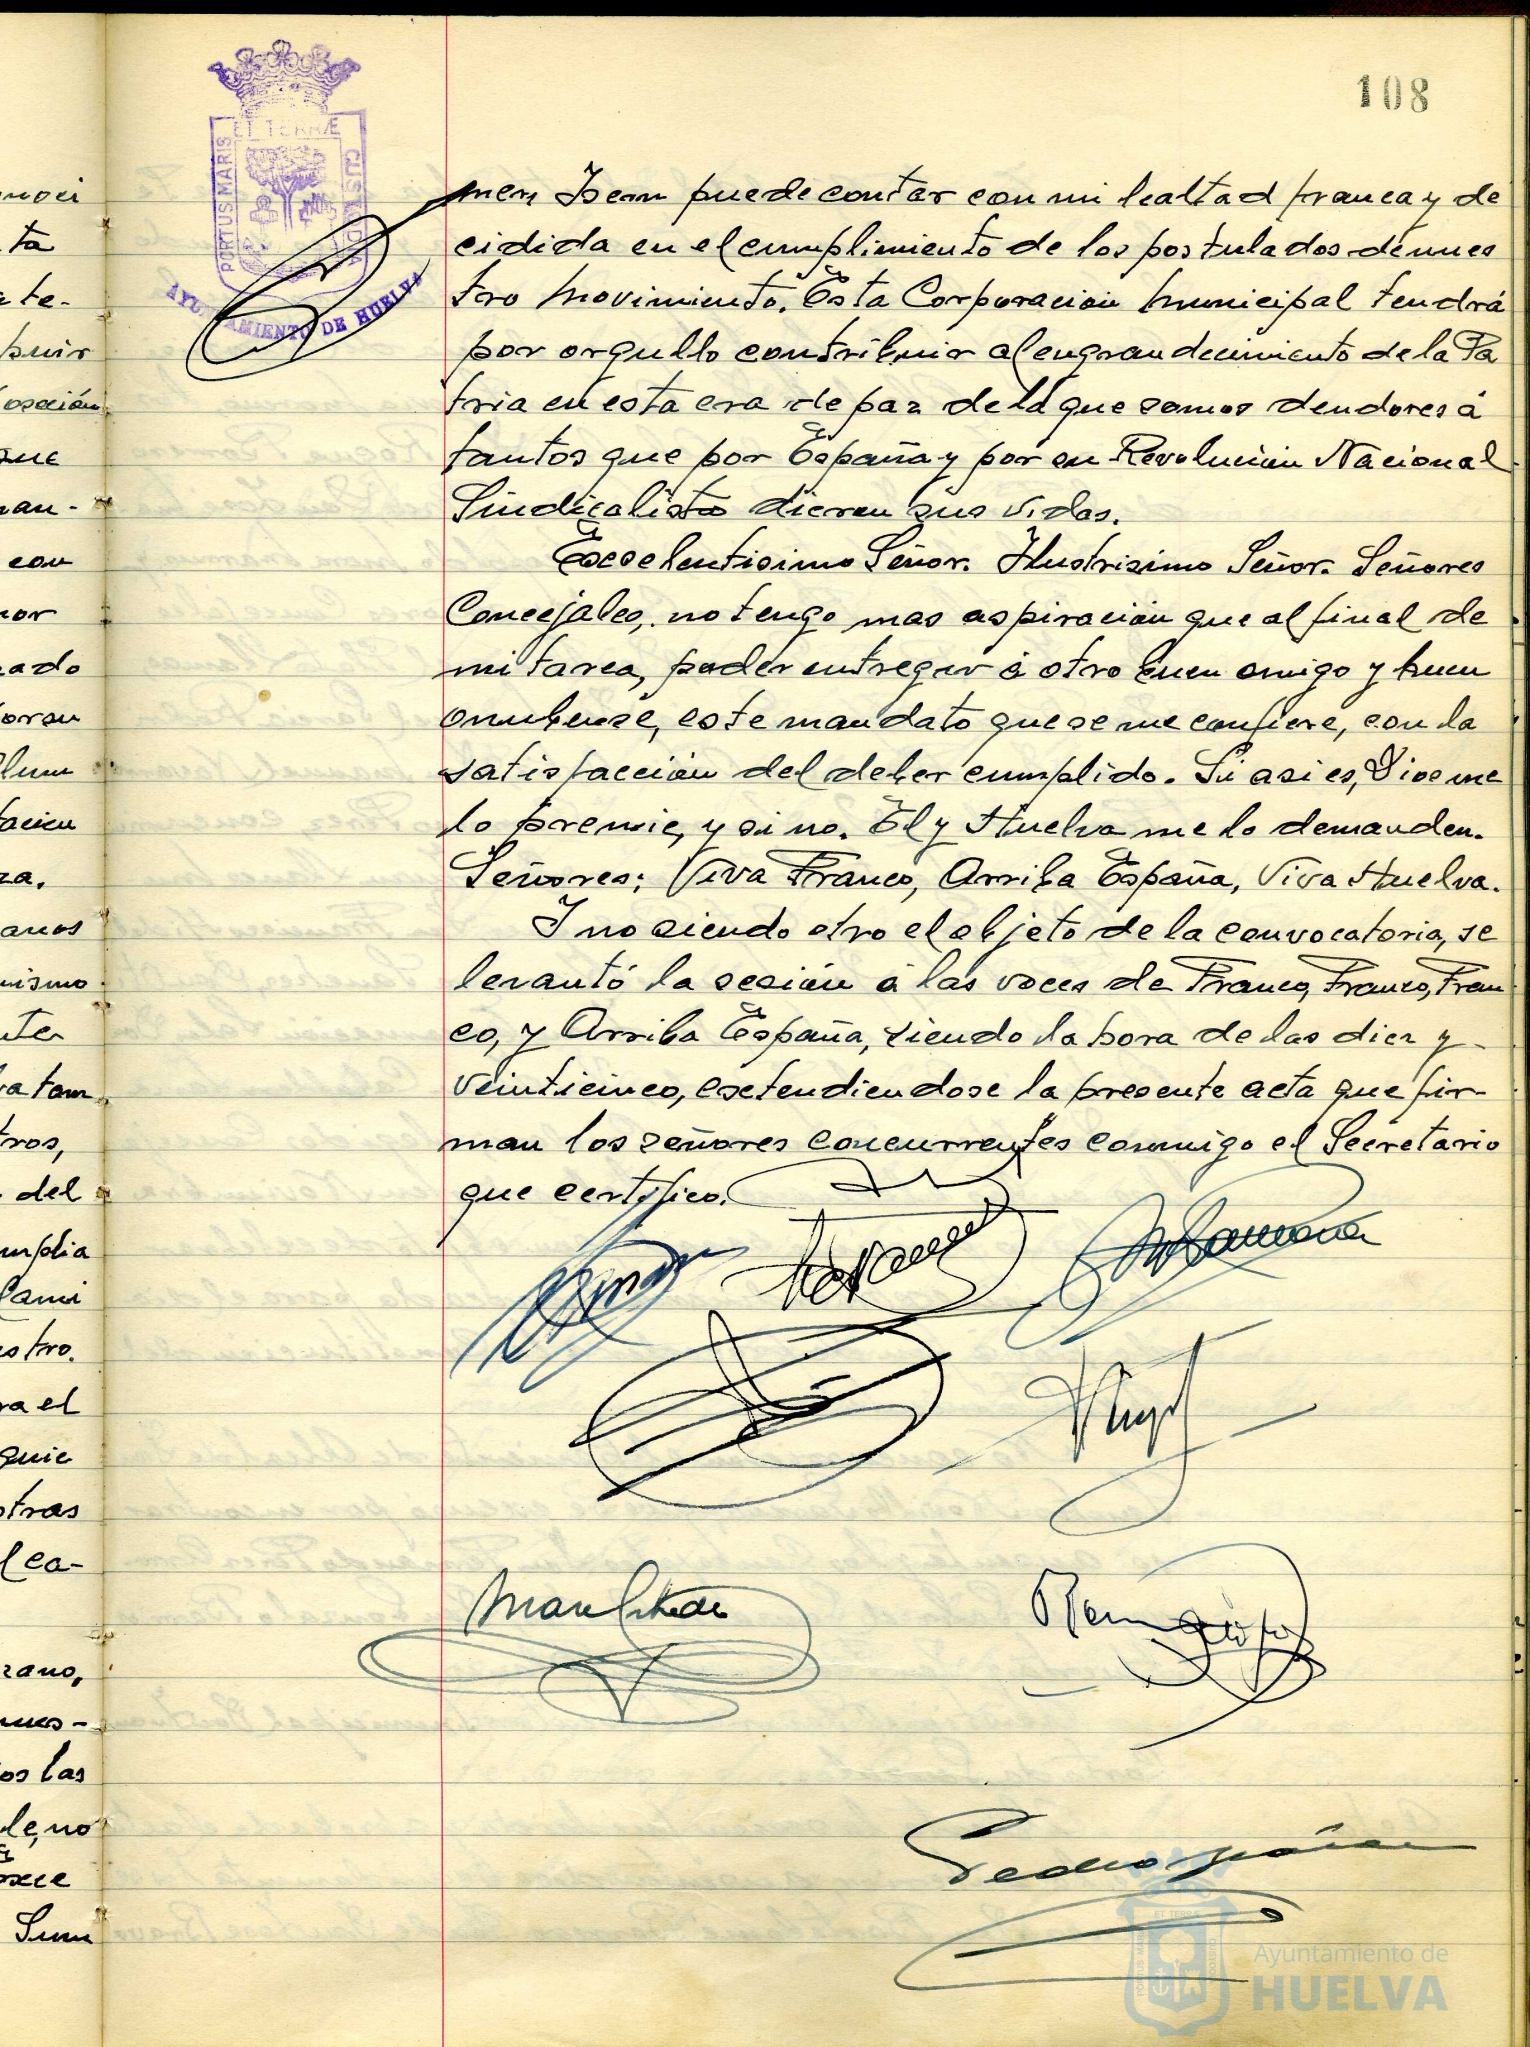 108
PORTUS MARIS ET TERRÆ CUSTODIA
AYUNTAMIENTO DE HUELVA
men Isern puede contar con mi lealtad franca y de
cidida en el cumplimiento de los postulados de nues
tro Movimiento. Esta Corporación Municipal tendrá
por orgullo contribuir al engrandecimiento de la Pa
tria en esta era de paz de la que somos deudores á
tantos que por España y por su Revolución Nacional
Sindicalista dieron sus vidas.
Excelentisimo Señor. Ilustrisimo Señor. Señores
Concejales, no tengo mas aspiración que al final de
mi tarea, poder entregar á otro buen amigo y buen
onubense, este mandato que se me confiere, con la
satisfacción del deber cumplido. Si asi es, Dios me
lo premie, y si no. El y Huelva me lo demanden.
Señores: Viva Franco, Arriba España, Viva Huelva.
I no siendo otro el objeto de la convocatoria, se
levantó la sesión á las voces de Franco, Franco, Fran
co, y Arriba España, siendo la hora de las diez y
veinticinco, extendiendose la presente acta que fir-
man los señores concurrentes conmigo el Secretario
que certifico.
Pedro
Ayuntamiento de
HUELVA
noci
ta
te-
puir
osición
que
man-
con
nor
rado
or su
lum
tacion
za.
anos
mismo
nte
va tam
tros,
del
mplia
Cami
estro.
ra el
quie
stras
l ca-
zano,
nues-
os las
le, no
Sum